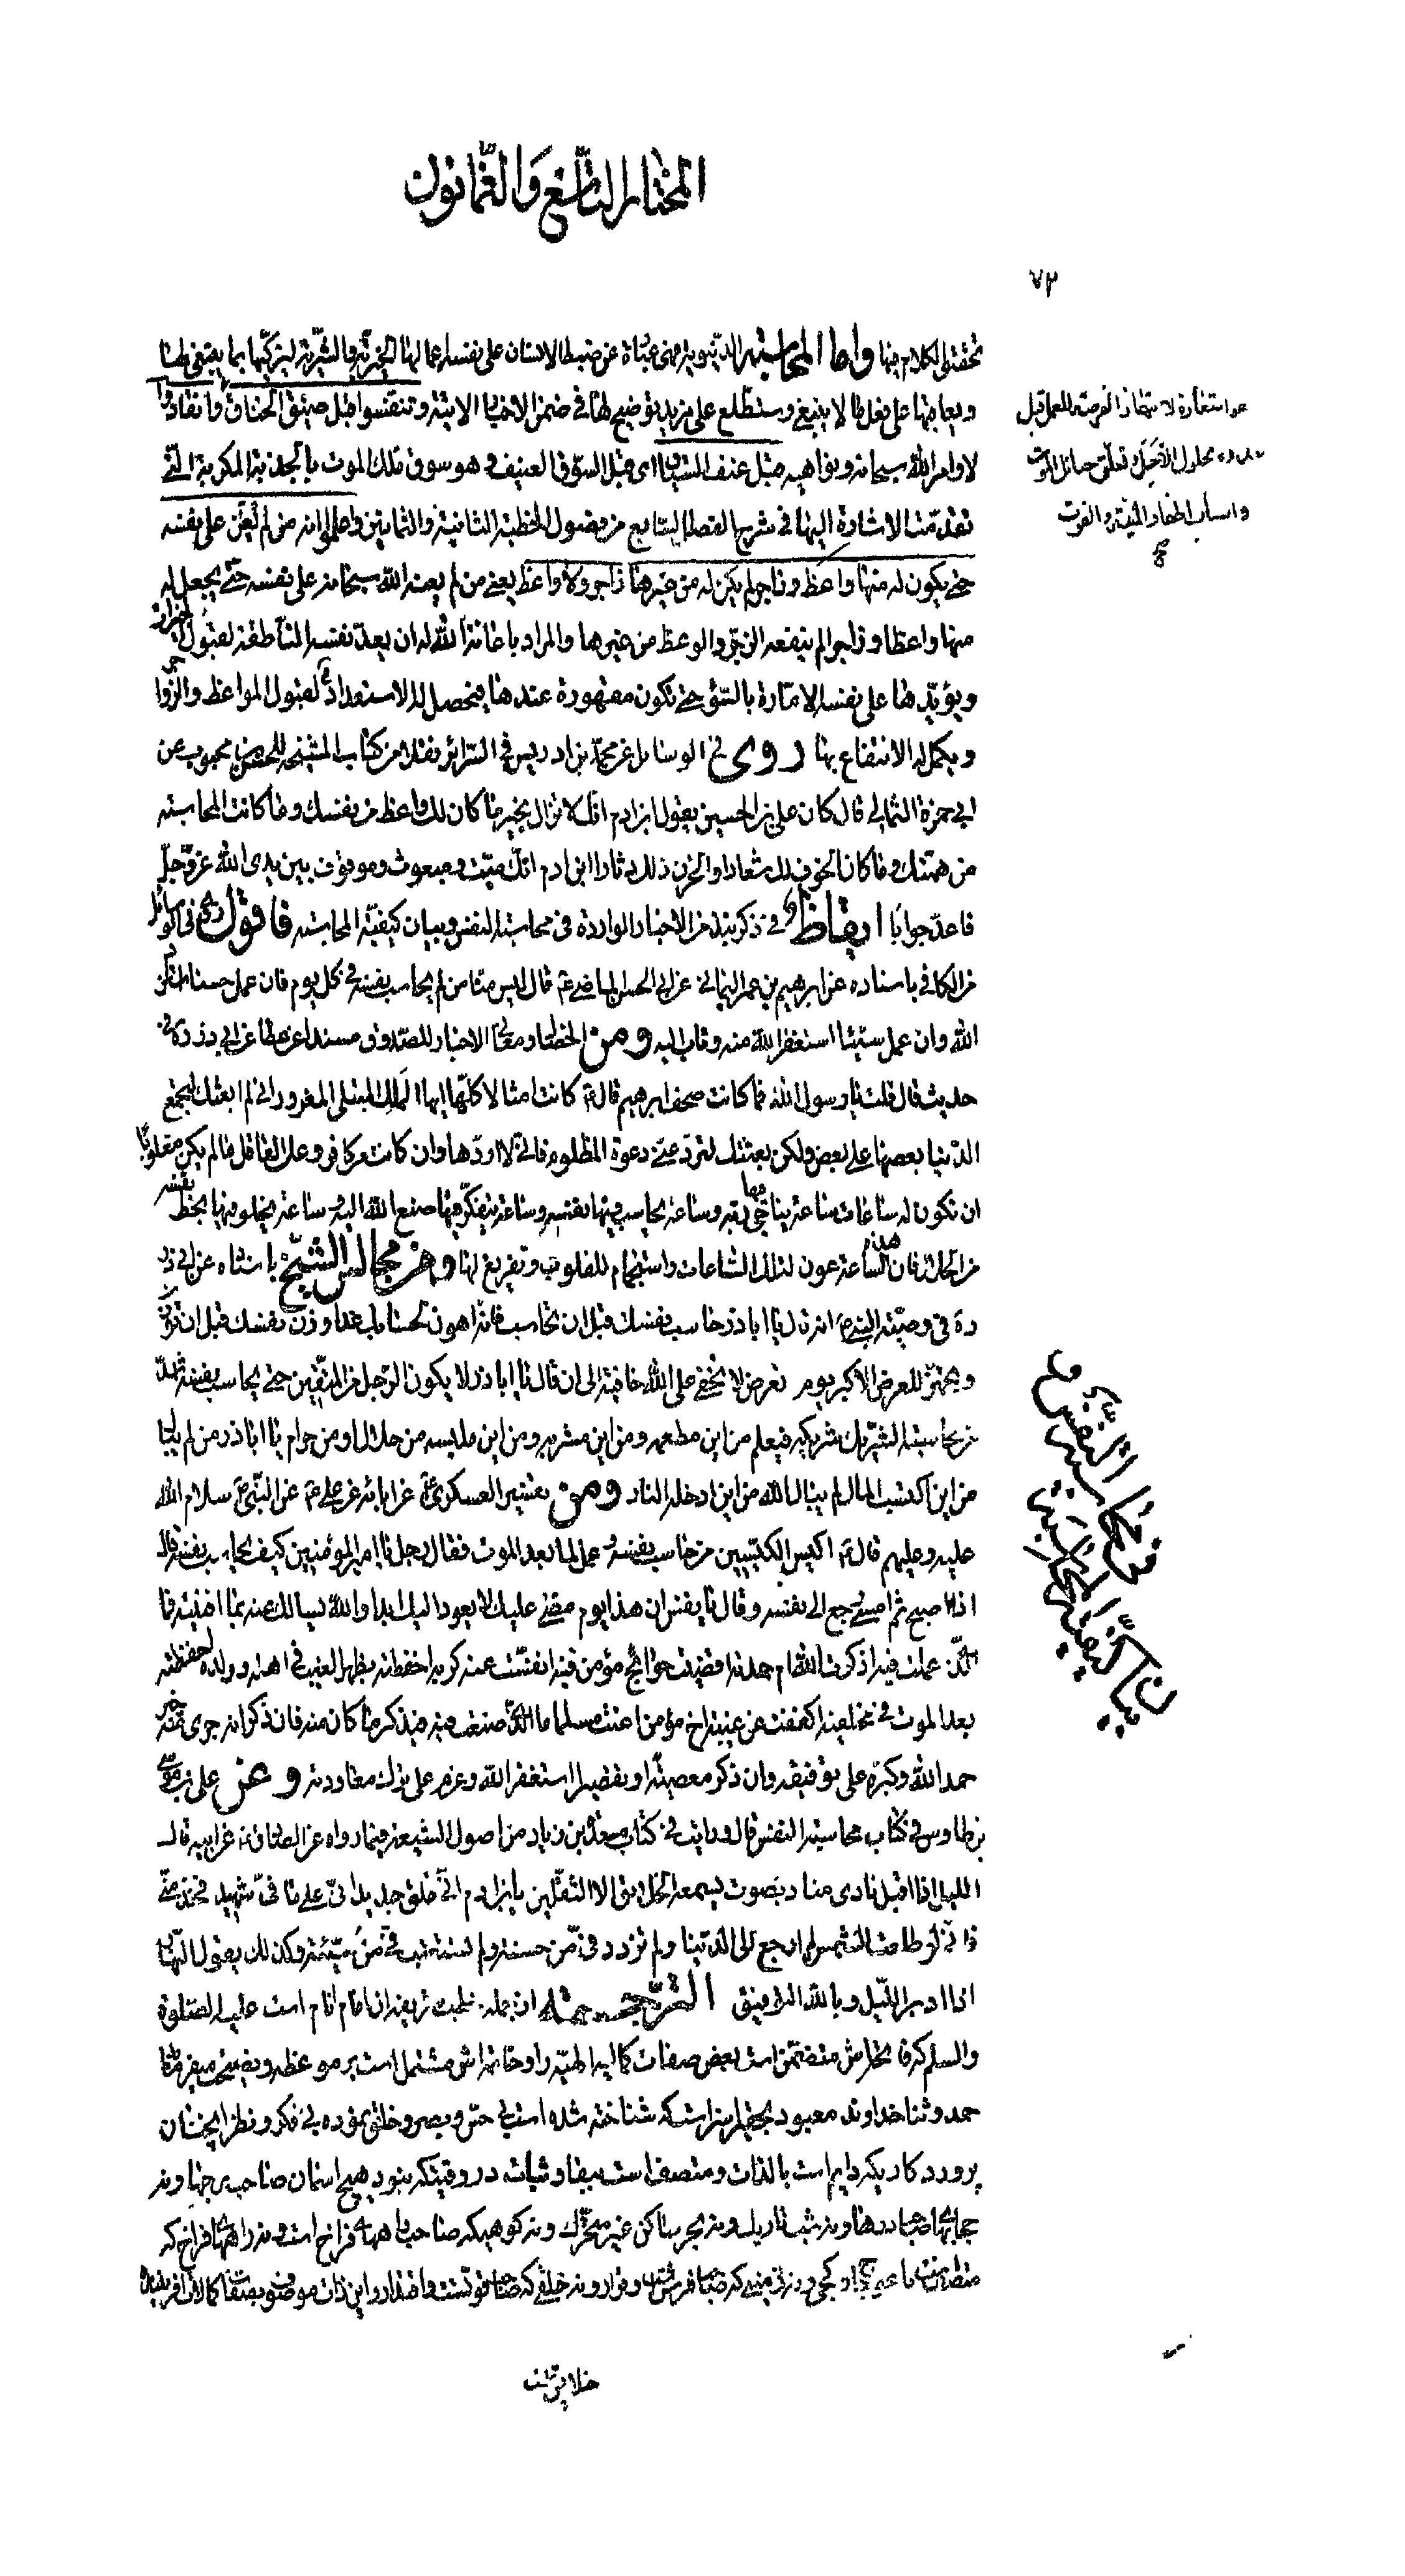 المختار التاسع والثمانون
٧٢
تحقيق الكلام فيها واما المحاسبة الدنيوية فهي عبارة عن ضبط الانسان على نفسه اعمالها الخيرية والشرية ليزكيها بما ينبغي لها
ويعاتبها على فعل ما لا ينبغي وستطلع على مزيد توضيح لها في ضمن الاخبار الاتية وتنفسوا قبل ضيق الخناق وانقادوا
لاوامر الله سبحانه ونواهيه قبل عنف السياق اي قبل السوق العنيف وهو سوق ملك الموت بالجذبة المكربة التي
تقدمت الاشارة اليها في شرح الفصل السابع من فصول الخطبة الثانية والثمانين واعلموا انه من لم يعن على نفسه
حتى يكون له منها واعظ وزاجر لم يكن له من غيرها زاجر ولا واعظ يعني من لم يعنه الله سبحانه على نفسه حتى يجعل له
منها واعظا وزاجرا لم ينفعه الزجر والوعظ من غيرها والمراد باعانة الله له ان يعد نفسه الناطقة لقبول الخيرات
ويؤيدها على نفسه الامارة بالسوء حتى تكون مقهورة عندها فيحصل له الاستعداد لقبول المواعظ والزواجر
ويكمل له الانتفاع بها روى في الوسائل عن محمد بن ادريس في السرائر نقلا من كتاب المشيخة للحسن بن محبوب عن
ابي حمزة الثمالي قال كان علي بن الحسين يقول ابن ادم انك لا تزال بخير ما كان لك واعظ من نفسك وما كانت المحاسبة
من همتك وما كان الخوف لك شعارا والحزن لك دثارا ابن ادم انك ميت ومبعوث وموقوف بين يدي الله عز وجل
فاعد جوابا ايقاظ في ذكر نبذ من الاخبار الواردة في محاسبة النفس وبيان كيفية المحاسبة فاقول روى في الوسائل
من الكافي باسناده عن ابرهيم بن عمر اليماني عن ابي الحسن الماضي ع قال ليس منا من لم يحاسب نفسه في كل يوم فان عمل حسنا استزاد
الله وان عمل سيئا استغفر الله منه وتاب اليه ومن الخصال ومعاني الاخبار للصدوق مسندا عن عطا عن ابي ذر ره في
حديث قال قلت يا رسول الله فما كانت صحف ابرهيم قال ص كانت امثالا كلها ايها الملك المبتلى المغرور اني لم ابعثك لتجمع
الدنيا بعضها على بعض ولكن بعثتك لترد عني دعوة المظلوم فاني لا اردها وان كانت من كافر وعلى العاقل ما لم يكن مغلوبا
ان تكون له ساعات ساعة يناجي فيها ربه وساعة يحاسب فيها نفسه وساعة يتفكر فيها صنع الله اليه وساعة يخلو فيها بحظ نفسه
من الحلال فان هذه الساعة عون لتلك الساعات واستجمام للقلوب وتفريغ لها ومن مجالس الشيخ باسناده عن ابي ذر
ره في وصية النبي ص انه قال يا ابا ذر حاسب نفسك قبل ان تحاسب فانه اهون لحسابك غدا وزن نفسك قبل ان توزن
وتجهز للعرض الاكبر يوم تعرض لا يخفى على الله خافية الى ان قال يا ابا ذر لا يكون الرجل من المتقين حتى يحاسب نفسه اشد
من محاسبة الشريك شريكه فيعلم من اين مطعمه ومن اين مشربه ومن اين ملبسه من حلال او من حرام يا ابا ذر من لم يبال
من اين اكتسب المال لم يبال الله من اين ادخله النار ومن تفسير العسكري ع عن ابائه عن علي ع عن النبي ص سلام الله
عليه وعليهم قال ص اكيس الكيسين من حاسب نفسه وعمل لما بعد الموت فقال رجل يا امير المؤمنين كيف يحاسب نفسه قال
اذا اصبح ثم امسى رجع الى نفسه وقال يا نفس ان هذا يوم مضى عليك لا يعود اليك ابدا والله يسالك عنه بما افنيته فما
الذي عملت فيه اذكرت الله ام حمدته اقضيت حوائج مؤمن فيه انفست عنه كربة احفظته بظهر الغيب في اهله وولده احفظته
بعد الموت في مخلفيه اكففت عن غيبة اخ مؤمن اعنت مسلما ما الذي صنعت فيه فيذكر ما كان منه فان ذكر انه جرى منه خير
حمد الله وكبره على توفيقه وان ذكر معصية او تقصيرا استغفر الله وعزم على ترك معاودته وعن علي بن موسى
بن طاوس في كتاب محاسبة النفس قال ورايت في كتاب مسعدة بن زياد من اصول الشيعة فيما رواه عن الصادق ع عن ابيه قال
الليل اذا اقبل نادى مناد بصوت يسمعه الخلايق الا الثقلين يا ابن ادم اني خلق جديد اني على ما في شهيد فخذ مني
فاني لو طلعت الشمس لم ارجع الى الدنيا ولم تزدد في من حسنة ولم تستعتب في من سيئة وكذلك يقول النهار
اذا ادبر الليل وبالله التوفيق الترجمة از جمله خطب شريفه ان امام انام است عليه الصلوة
والسلم كه فاتحه اش متضمن است بعض صفات كماليه الهيه را وخاتمه اش مشتمل است بر موعظه ونصيحت ميفرمايد
حمد وثنا خداوند معبود بحقي را سزاست كه شناخته شده است بي حس وبصر وخلق نموده بي فكر ونظر انچنان
پروردگاريكه دايم است بالذات ومتصف است ببقا وثبات در وقتيكه نبود هيچ اسمان صاحب برجها ونه
حجابها صاحب درها ونه شب تاريك ونه بحر ساكن غير متحرك ونه كوهيكه صاحب راههاي فراخ است ونه راههاي فراخ كه
متصف است باعوجاج وكجي ونه زميني كه صاحب فرش است وقرار ونه خلقي كه صاحب قوتست واقتدار واين ذات موصوف بصفات كمال
خلايق است
هو استعارة لانتهاز الفرصة للعمل قبل
محلول الاجل وتعلق حبائل الموت
واسباب المنية والفوت
في محاسبة النفس و
بيان كيفية المحاسبة